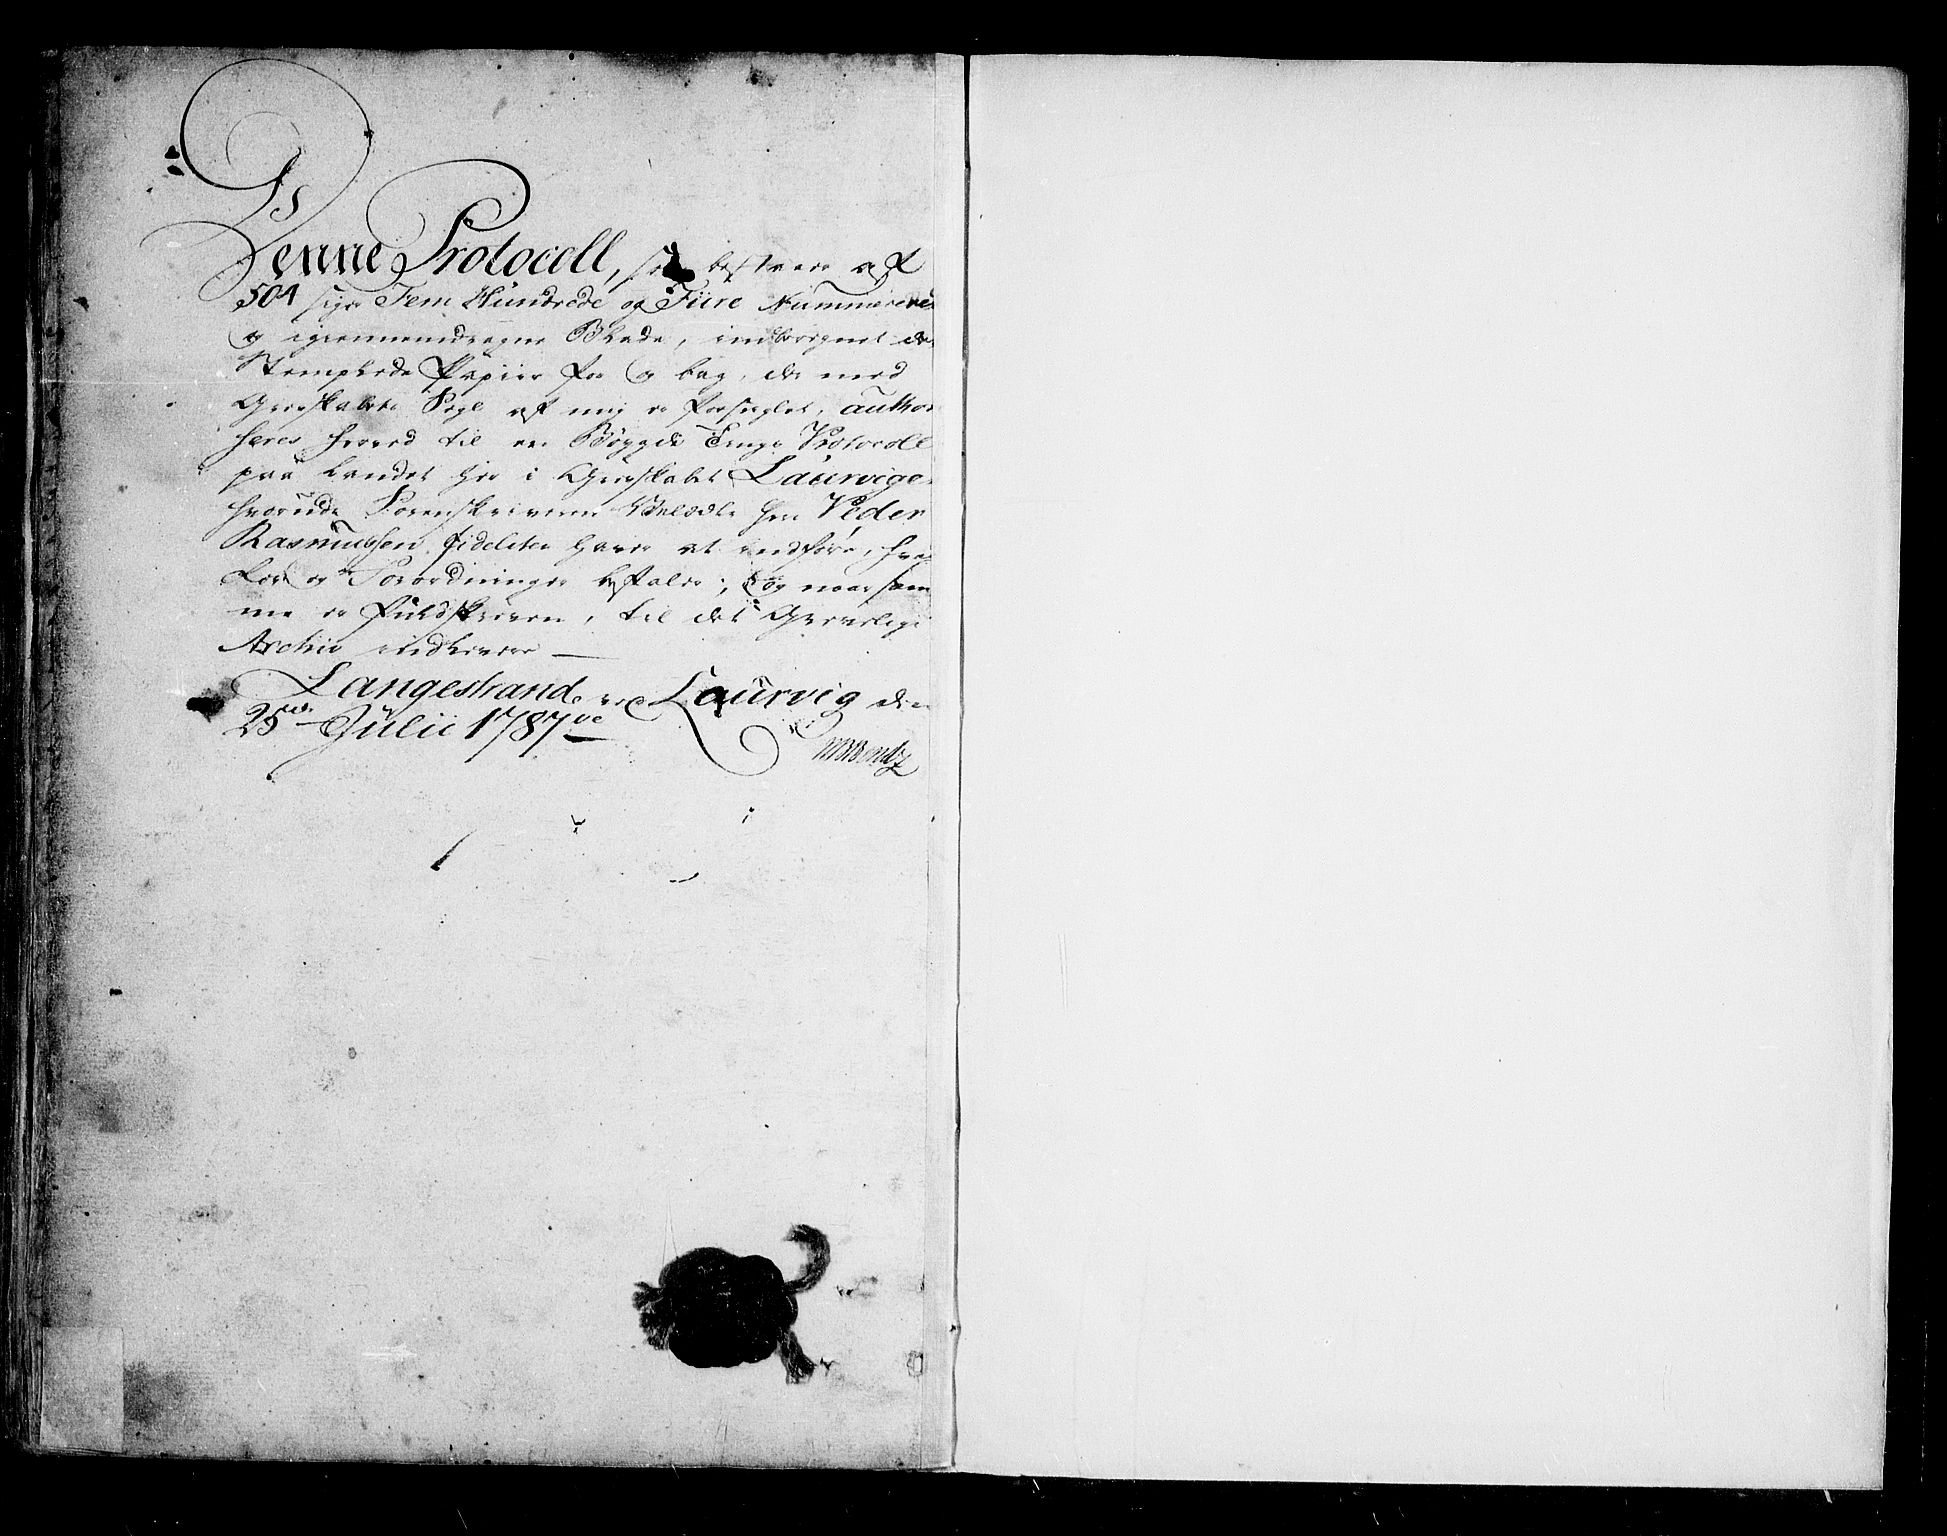 Denne Protocoll, som bestaaer af
504 siger Fem Hundrede og Fiire Nummererede
og igiennemdragne Blade, indberegnet de
Stemplede Papiir for og bag, der med
Grevskabets Segl af mig er forseiglet, authori
seres hermed til en Bøygde Tings Protocoll
paa Landet her i Grevskabet Laurvigen
hvorudi Sorenskriveren Velædle Hr Peder
Rasmussen fideliter haver at indføre, hvad
Lov og Forordninger befaler; og naar sam
me er fuldskreven, til det Grevelige
Archiv indlevere
Langestrand ved Laurvig den
25de Julii 1787ve